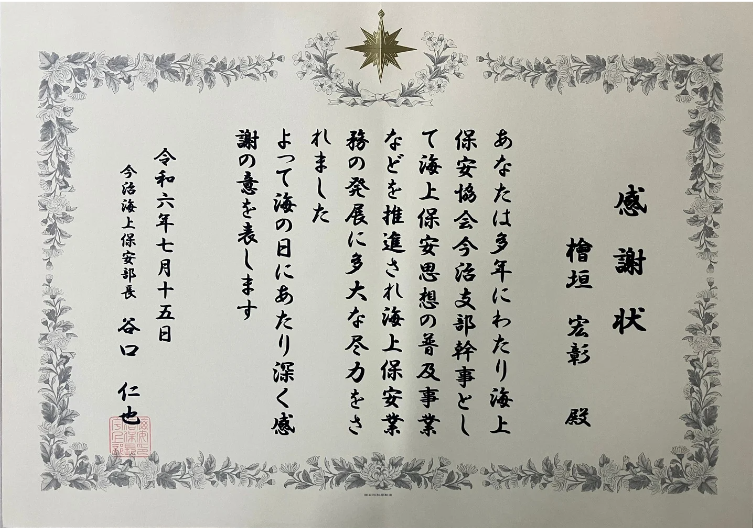 感謝状
檜垣 宏彰 殿
あなたは多年にわたり海上
保安協会今治支部幹事とし
て海上保安思想の普及事業
などを推進され海上保安業
務の発展に多大な尽力をさ
れました
よって海の日にあたり深く感
謝の意を表します
令和六年七月十五日
今治海上保安部長 谷口 仁也